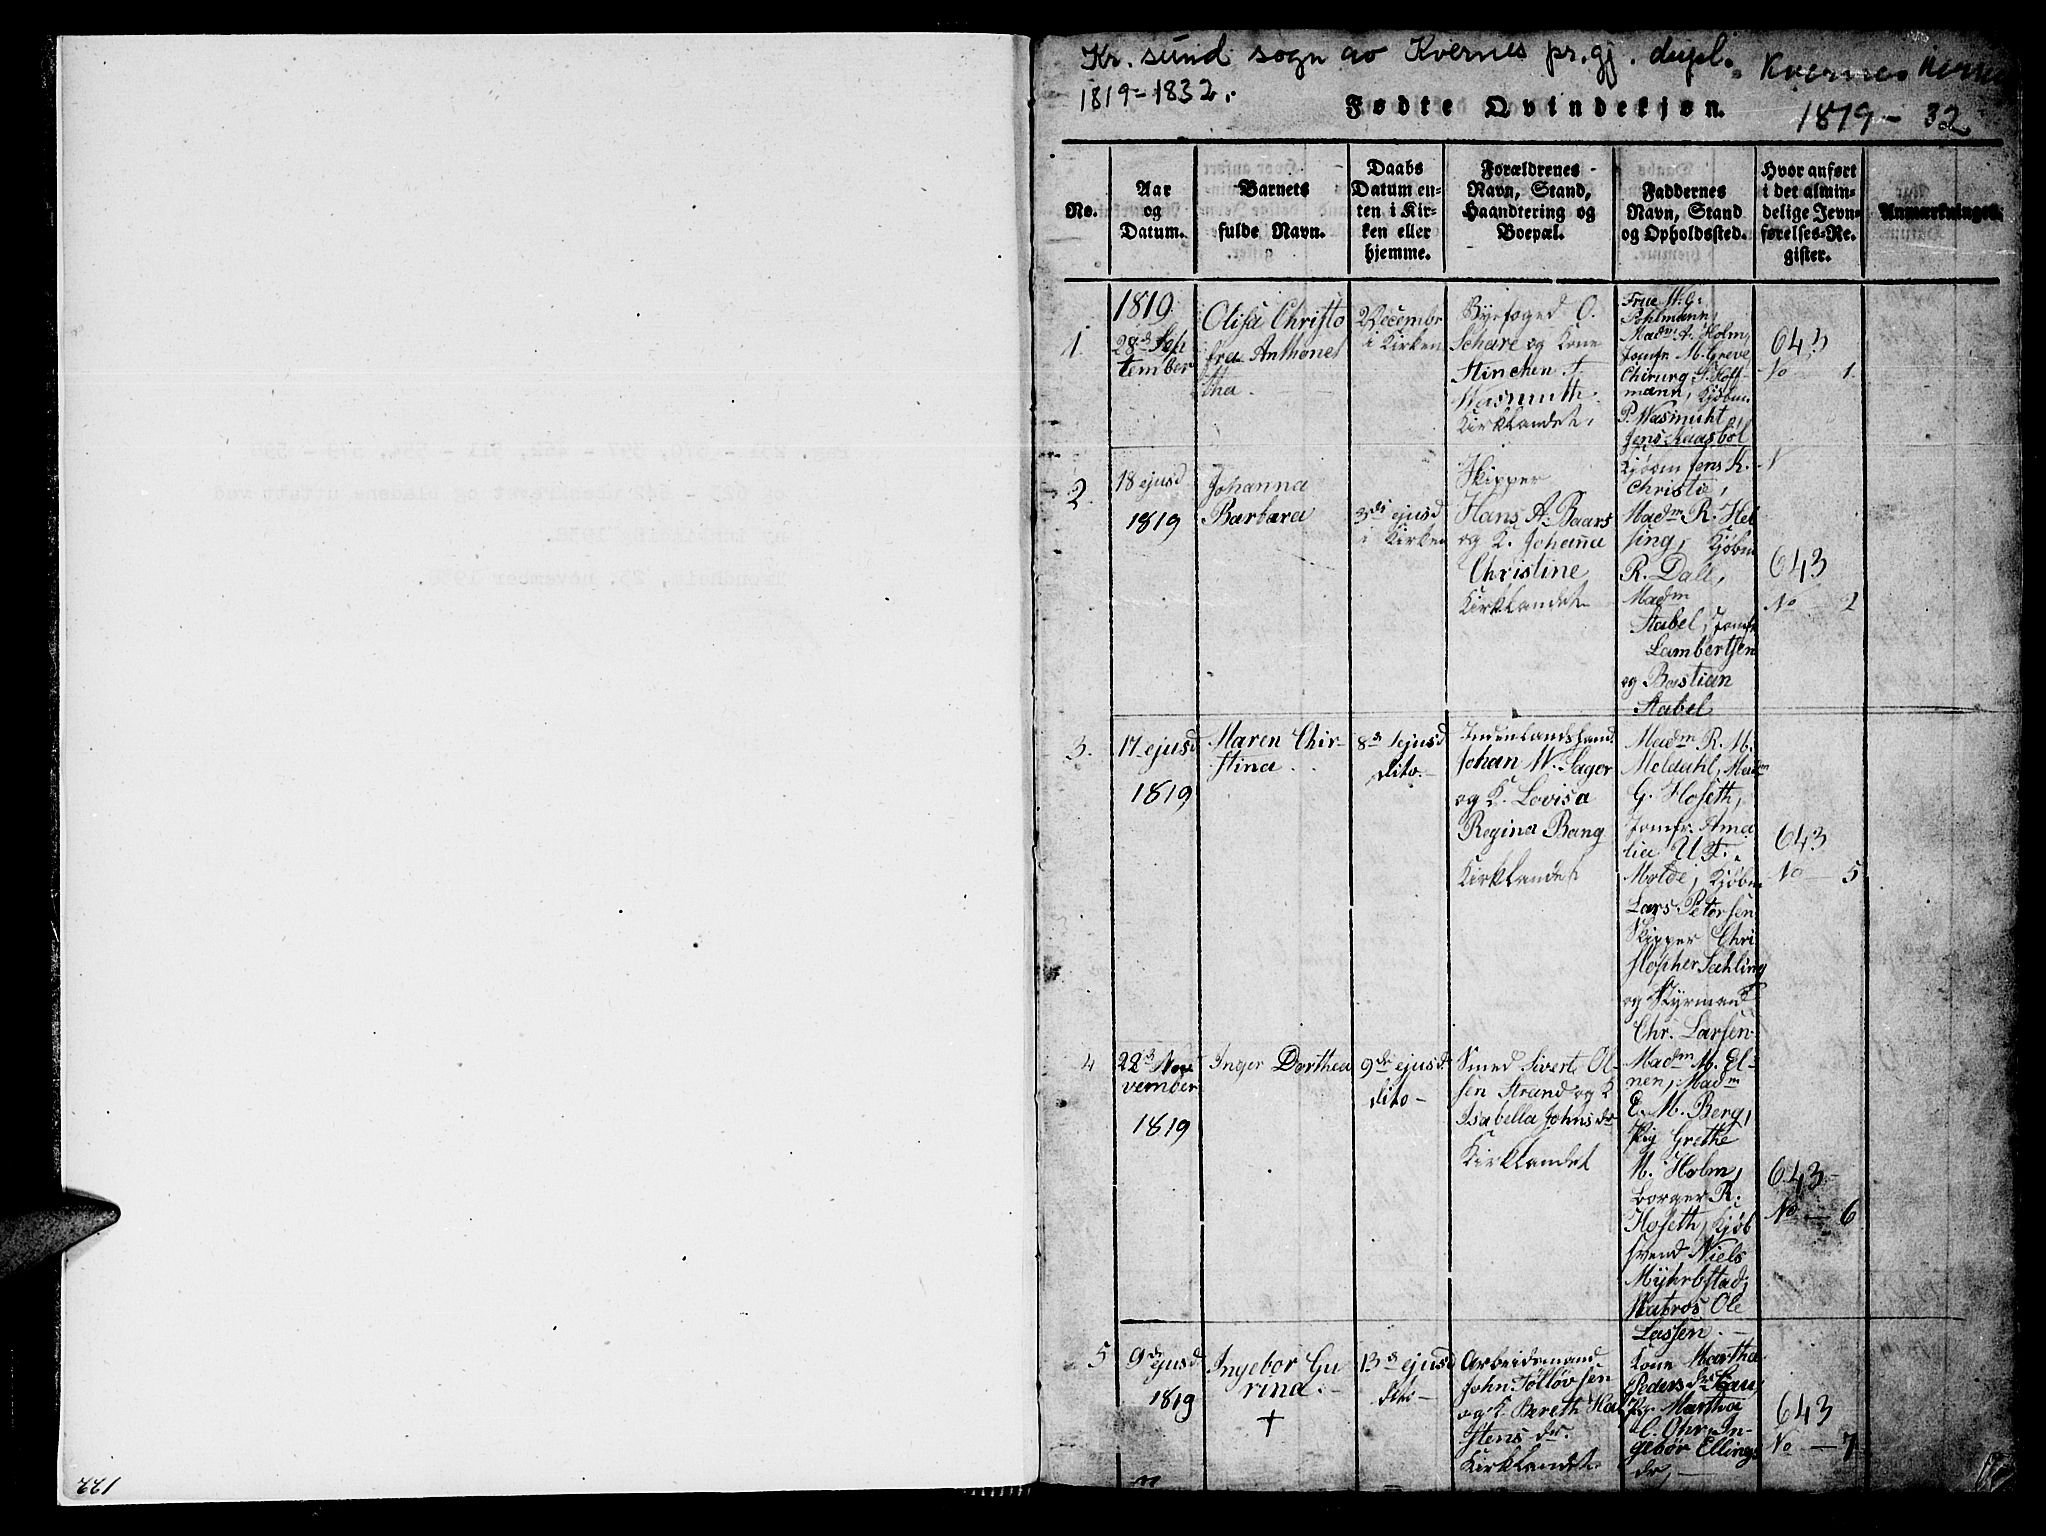 Kr. sund sogn av Kvernes pr.gj. dupl.
1819-1832.
Kvernes
1819 - 32
Fødte Qvindekjøn.
No.
Aar
og
Datum.
Barnets
fulde Navn.
Daabs
Datum en-
ten i Kir-
ken eller
hjemme.
Forældrenes
Navn, Stand,
Haandtering og
Boepæl.
Faddernes
Navn, Stand
og Opholdssted.
Hvor anført
i det almin-
delige Jevn-
førelses-Re-
gister.
Anmærkninger.
1.
1819
28de Sep
tember
Olisa Christo
fra Anthonet
tha.
2 Decembr
i Kirken
Byefoged O.
Schare og Kone
Stinchen
Wasmuth
Kirklandet,
Frue
Pohlmann,
Madm A. Holm,
Jomfr. M. Greve
Chirurg Hoff
mann, Kjøbm.
P. Wasmuht,
Jens Kaasbøl
643
No 1.
2.
18 ejusd
1819
Johanna
Barbara
3di ejusd
i Kirken
Skipper
Hans A. Baars
og K. Johanna
Christine
Kirklandet
Kjøbm Jens K.
Christie,
Madm R. Hel
sing, Kjøbm
R. Dall,
Madm
Stabel, Jomfr
Lambertsen
og Bastian
Stabel
643
No 2
3.
17 ejusd
1819
Maren Chir-
stina
8d ejusd
dito.-
Indenlandshand.
Johan W. Sager
og K. Lovisa
Regina Bang
Kirklandet
Madm R. M.
Meldahl, Madm
G. Hoseth,
Jomfr. Ama
lia U. F.
Molde, Kjøbm
Lars Petersen
Skipper Chri
stopher Sahling
og Styrmand
Chr. Larsen
643
No - 5
4
22d No
vember
1819
Inger Dorthea
9de ejusd.
dito -
Smed Sivert Ol-
sen Strand og K
Isabella Johnsdr
Kirklandet
Madm M. El-
nen, Madm
E. M. Berg,
Pig Grethe
M. Holm,
borger R.
Hoseth, Kjøb
svend Niels
Myhrbstad,
Matros Ole
Lassen.
643-
No - 6
5
9de ejusd
1819
Ingebor Gu
rina.
+
13d ejusd
dito -
Arbeidsmand
John Tølløvsen
og K. Bereth Kar
stens dr.
Kirklandet
Kone Martha
Pedersdr
Pig Martha
C. Ohr, In-
gebør Ellings
dr, -
643
No - 7
221